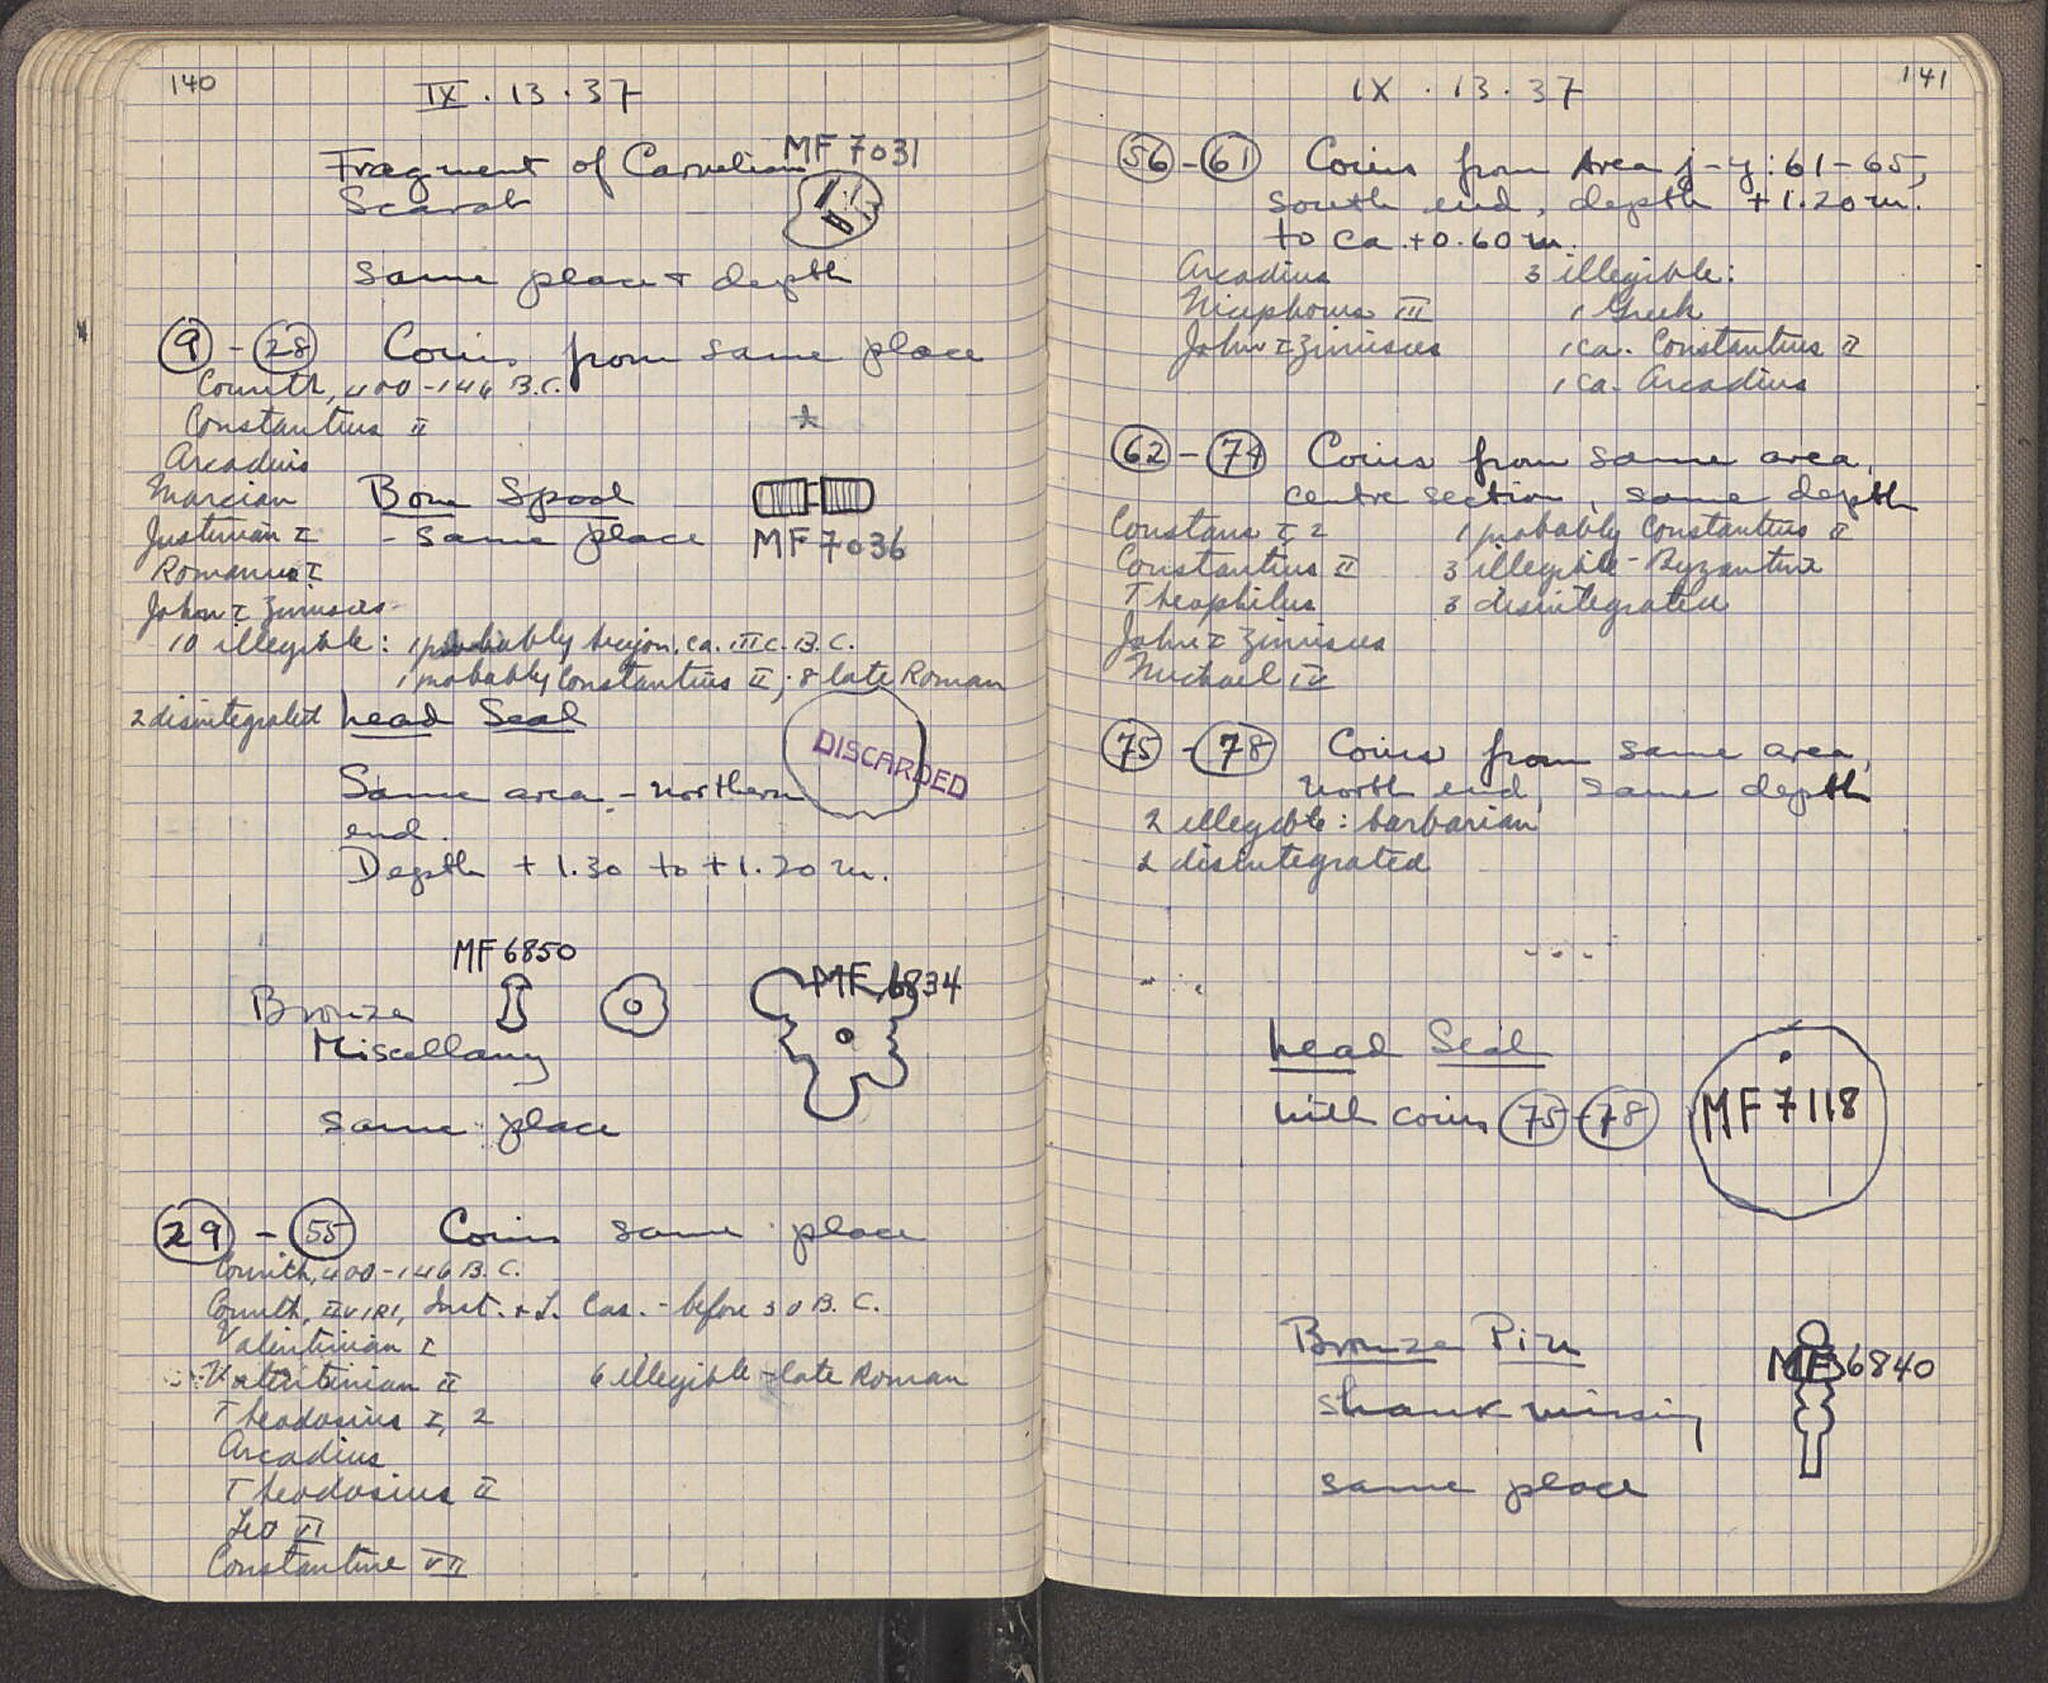 140
IX . 13 . 37
MF 7031
Fragment of Carnelian
Scarab
same place + depth
9 - 28 Coins from same place
Corinth, 400-146 B.C.
Constantius II
Arcadius
Marcian
Justinian I
Romanus I
John I Zimisces
Bone Spool
- same place
MF 7036
10 illegible: 1 probably ca. III C. B.C.
1 probably Constantius II; 8 late Roman
2 disintegrated
Lead Seal
DISCARDED
Same area - northern
end.
Depth + 1.30 to + 1.20 m.
MF 6850
MF 6834
Bronze
Miscellany
same place
29 - 55 Coins same place
Corinth, 400-146 B.C.
Corinth, IIVIRI, Inst. + L. Cas. - before 30 B.C.
Valentinian I
Valentinian II
6 illegible - late Roman
Theodosius I, 2
Arcadius
Theodosius II
Leo VI
Constantine VII
141
IX . 13 . 37
56 - 61 Coins from Area j-y: 61-65,
south end, depth + 1.20 m.
to ca +0.60 m.
Arcadius
Nicephorus III
John I Zimisces
3 illegible:
1 Greek
1 ca. Constantius II
1 ca. Arcadius
62 - 74 Coins from same area,
centre section, same depth
Constans I, 2
Constantius II
Theophilus
John I Zimisces
Michael IV
1 probably Constantius II
3 illegible - Byzantine
3 disintegrated
75 - 78 Coins from same area,
north end, same depth
2 illegible: barbarian
2 disintegrated
Lead Seal
with coins 75 - 78
MF 7118
Bronze Pin
shank missing
same place
MF 6840